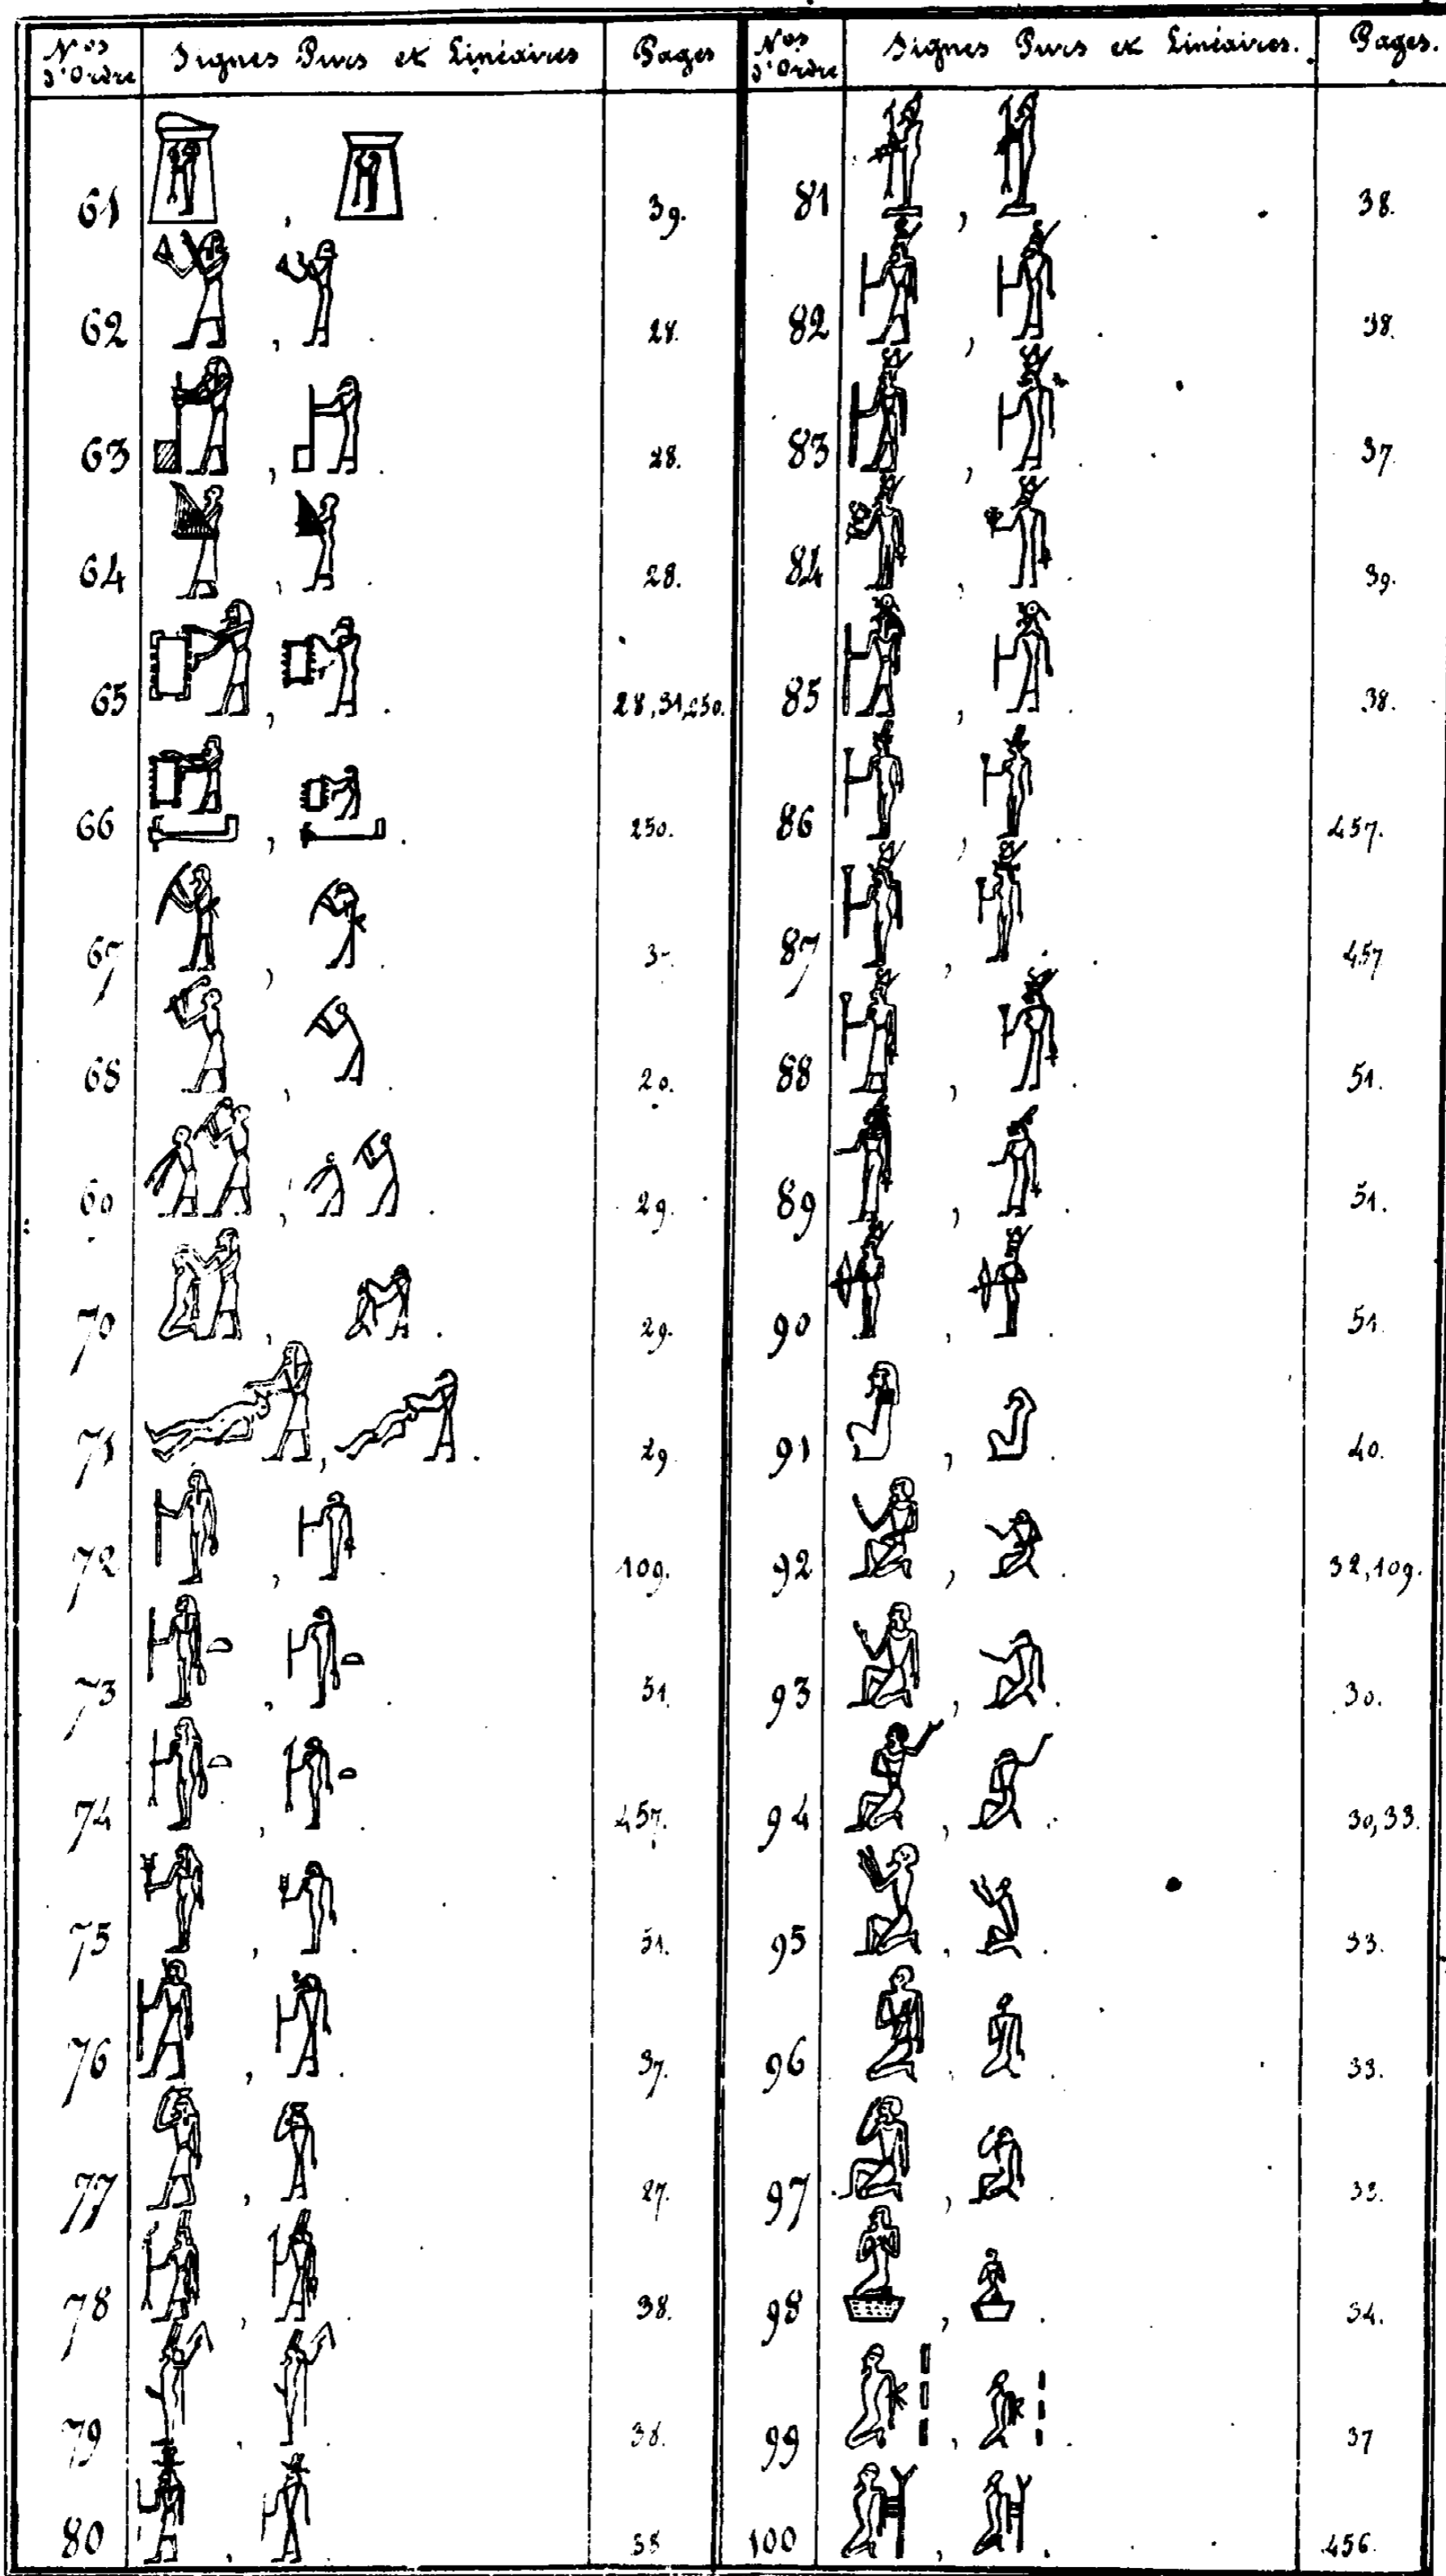 Nos d'Ordre Signes Purs et Linéaires Pages
61 39.
62 28.
63 28.
64 28.
65 28,31,250.
66 250.
67
68 20.
69 29.
70 29.
71 29
72 109.
73 51.
74 457.
75 51.
76 37.
77 27.
78 38.
79 38.
80 38
Nos d'Ordre Signes Purs et Linéaires. Pages.
81 38.
82 38.
83 37.
84 39.
85 38.
86 457.
87 457
88 51.
89 51.
90 51.
91 40.
92 32,109.
93 30.
94 30,33.
95 33.
96 33.
97 33.
98 34.
99 37
100 456.